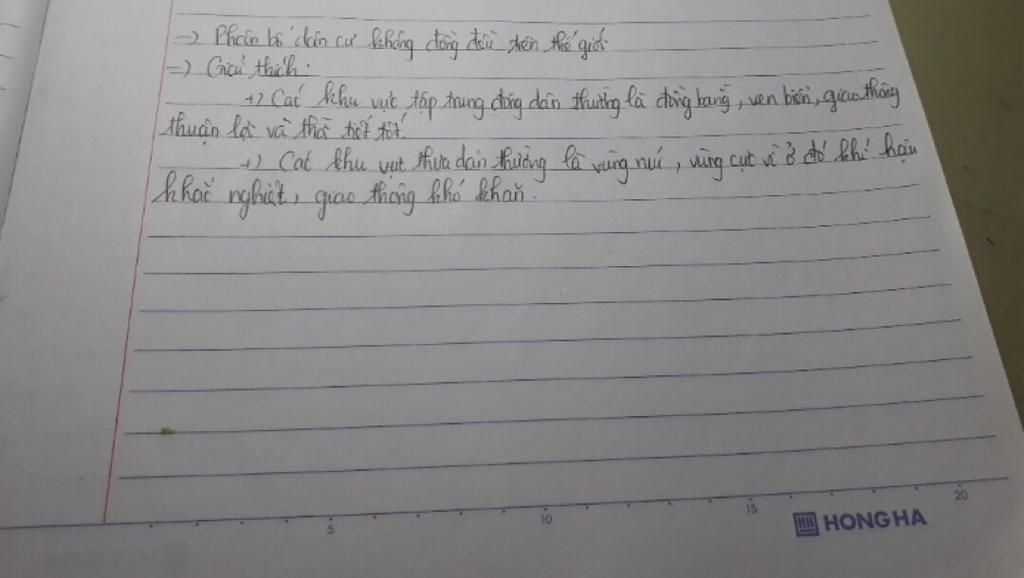 -> Phân bố dân cư không đồng đều trên thế giới.
=> Giải thích:
+) Các khu vực tập trung đông dân thường là đồng bằng, ven biển, giao thông
thuận lợi và thời tiết tốt.
+) Các khu vực thưa dân thường là vùng núi, vùng cực vì ở đó khí hậu
khắc nghiệt, giao thông khó khăn.
5 10 15 20
HONG HA